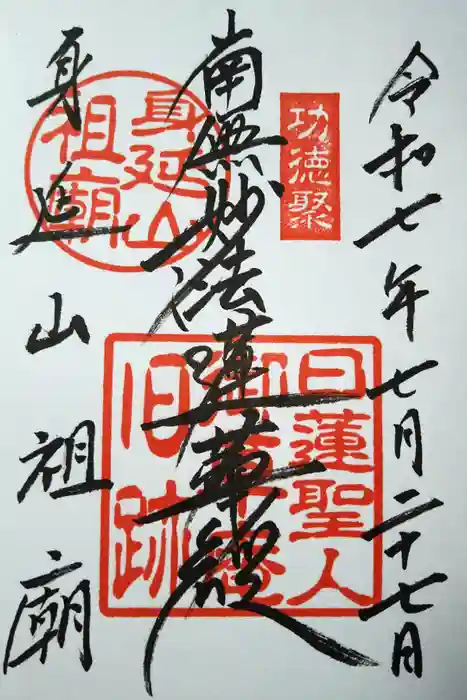 令和七年七月二十七日
功徳聚
南無妙法蓮華經
日蓮聖人
御草庵
旧跡
身延山
祖廟
身延山祖廟